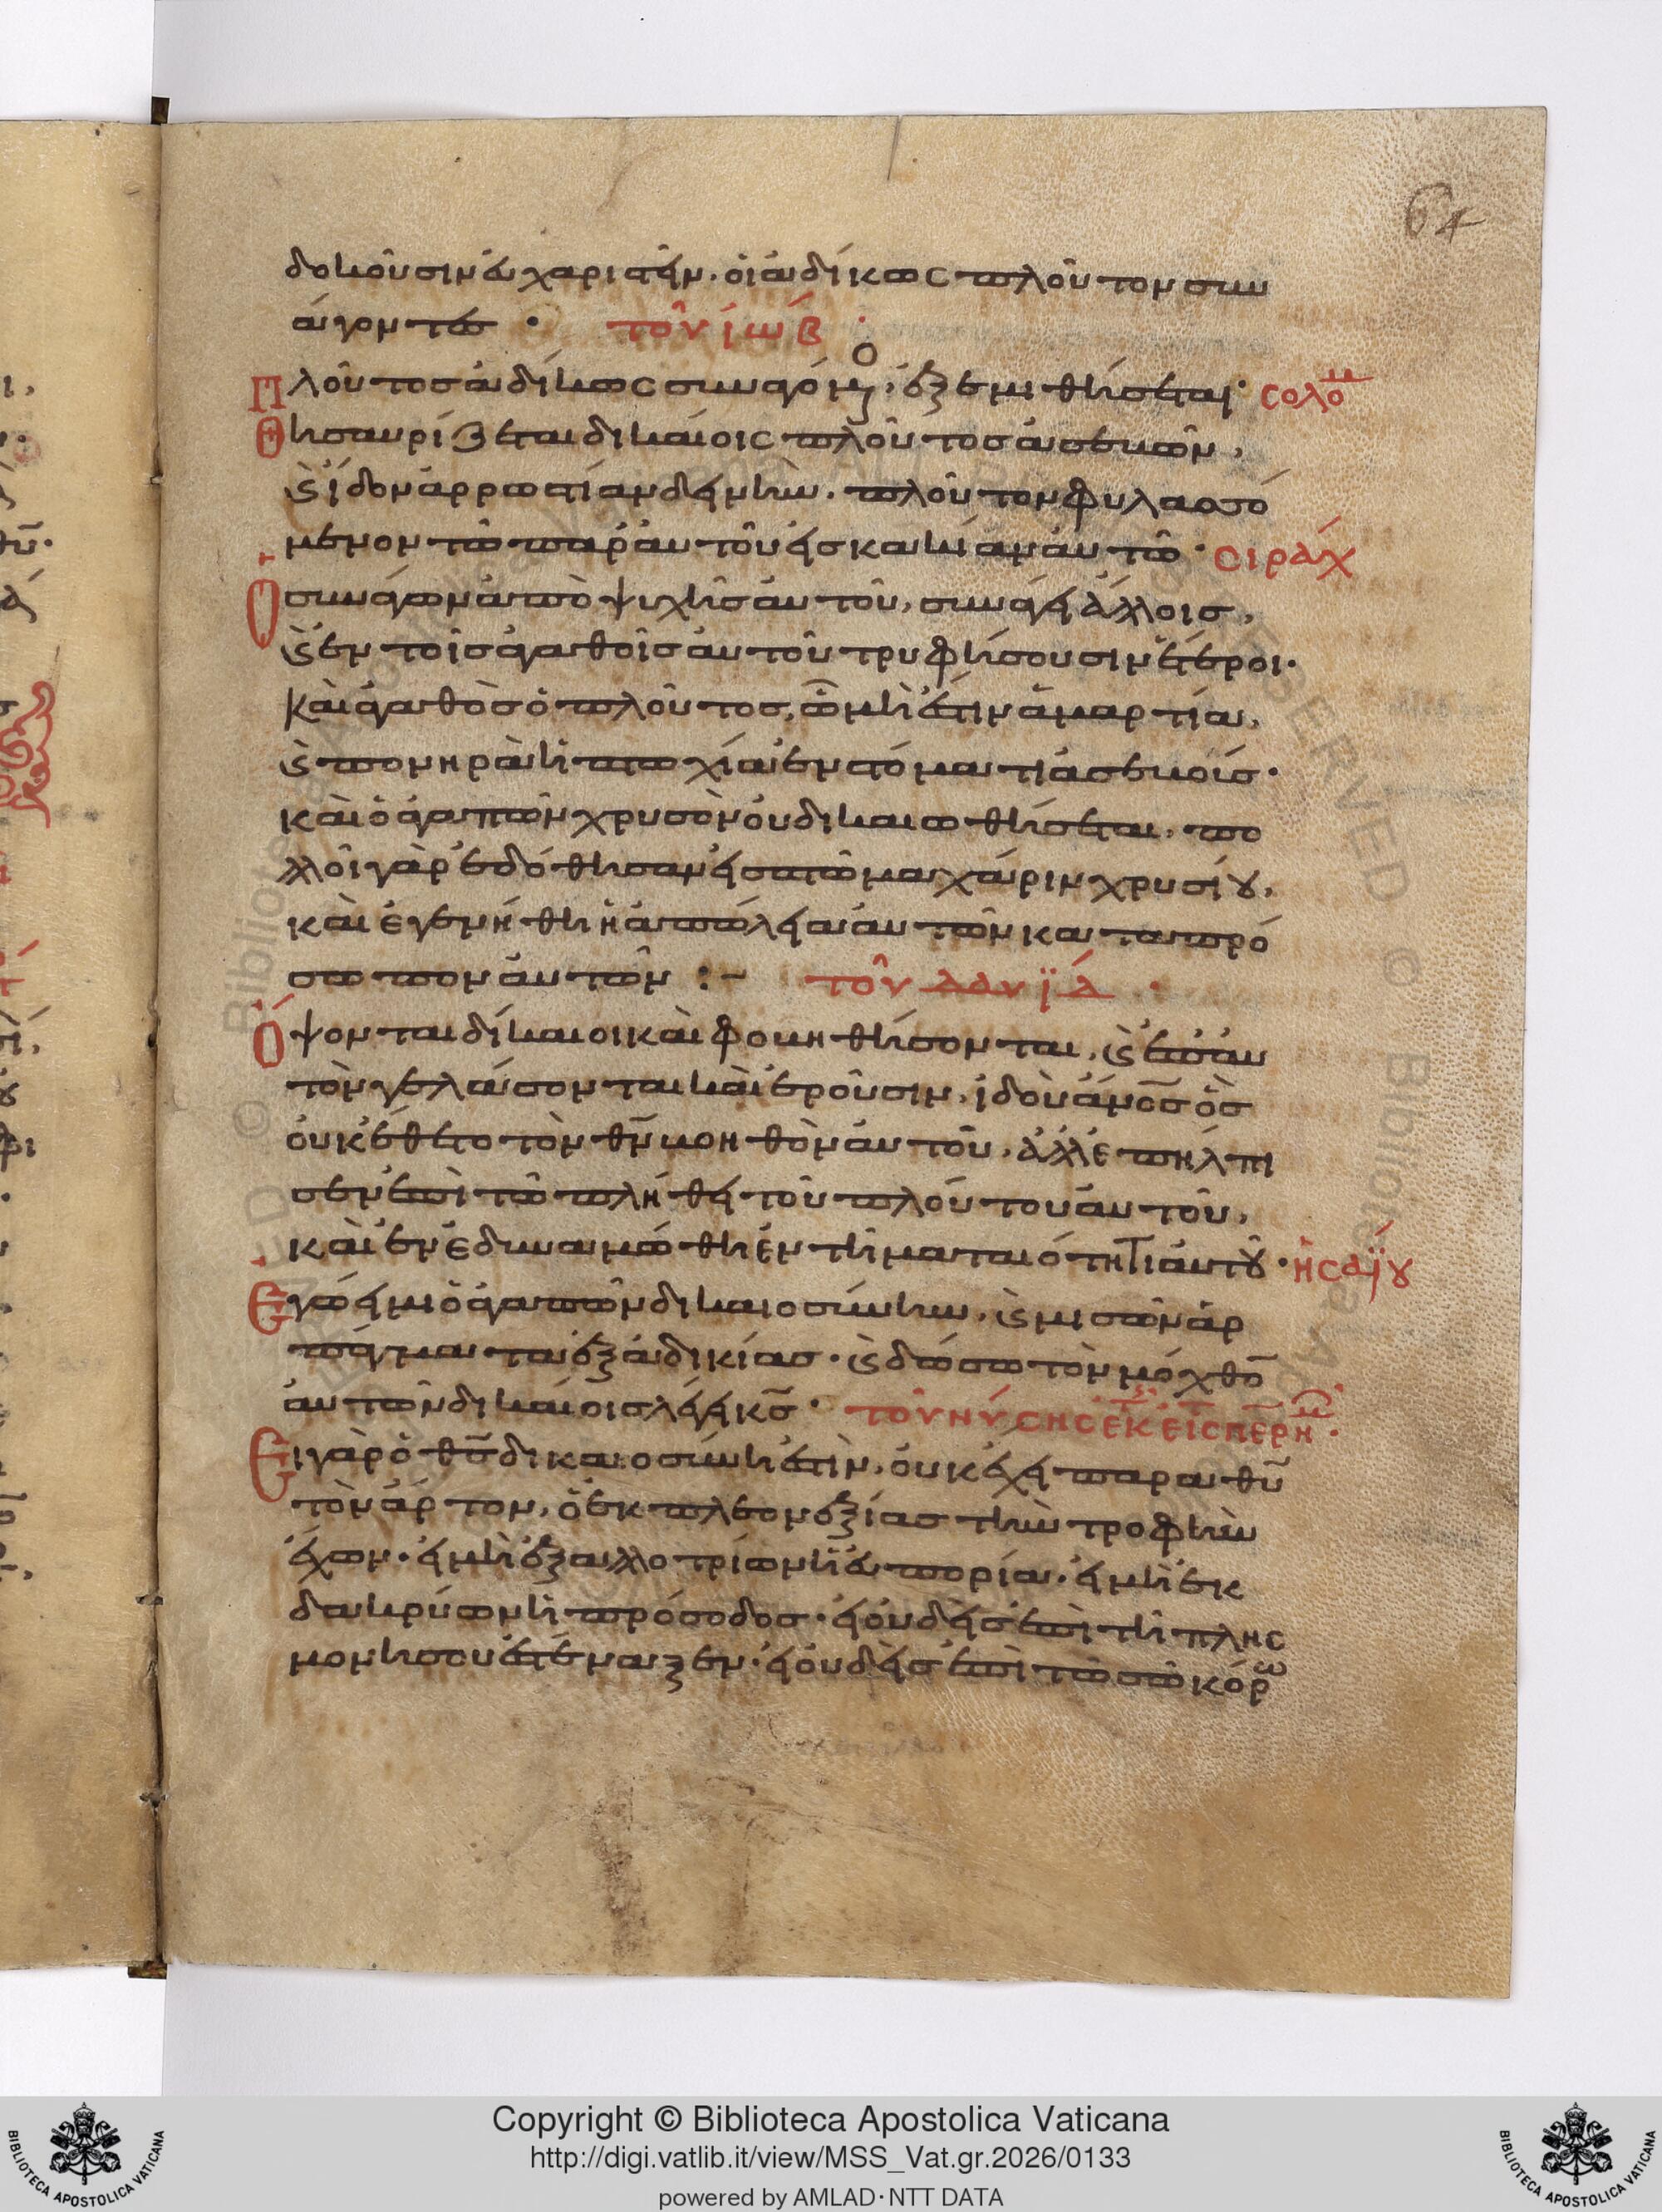 64
δοκοῦσιν ἀχαριστεῖν. οἱ ἀδίκως πλοῦτον συν
άγοντες · τοῦ ἰώβ ·
Πλοῦτος ἀδίκως συναγόμενος, ἐξεμηθήσεται · σολομ
Θησαυρίζεται δικαίοις πλοῦτος ἀσεβῶν,
ϗ ἴδον ἀρρωστίαν δεινὴν. πλοῦτον φυλασσό
μενον τῶ παρ' αὐτοῦ εἰς κακίαν αὐτῶ · σιράχ
Ὁ συνάγων ἀπὸ ψυχῆς αὐτοῦ, συνάγει ἄλλοις,
ϗ ἐν τοῖς ἀγαθοῖς αὐτοῦ τρυφήσουσιν ἕτεροι.
Καὶ ἀγαθὸς ὁ πλοῦτος, ὧ μὴ ἔστιν ἁμαρτία,
ϗ πονηρὰ ἡ πτωχία ἐν στόματι ἀσεβοῖς ·
καὶ ὁ ἀγαπῶν χρυσὸν οὐ δικαιωθήσεται, πο
λλοὶ γὰρ ἐδόθησαν εἰς πτῶμα χάριν χρυσίου,
καὶ ἐγενήθη ἡ ἀπώλεια αὐτῶν κατα πρό
σωπον αὐτῶν :- τοῦ δανϊδ ·
Ὄψονται δίκαιοι καὶ φοβηθήσονται, ϗ ἐπ' αὐ
τὸν γελάσονται καὶ ἐροῦσιν, ἰδοὺ ἄνος ὃς
οὐκ ἔθετο τὸν θν βοηθὸν αὐτοῦ, ἀλλ' ἐπήλπι
σεν ἐπὶ τῶ πλήθει τοῦ πλούτου αὐτοῦ,
καὶ ἐνεδυναμώθη ἐν τῆ ματαιότητι αὐτοῦ · ἡσαΐου
Ἐγώ εἰμι ὁ ἀγαπῶν δικαιοσύνην, ϗ μισῶν ἁρ
πάγματα ἐξ ἀδικίας · ϗ δώσω τὸν μόχθον
αὐτῶν δικαίοις λέγει κς · τοῦ νύσης ἐκ
Εἰ γὰρ ὁ θς δικαιοσύνη ἐστὶν, οὐκ ἔχει παρα θυ
τὸν ἄρτον, ὁ ἐκ πλεονεξίας τὴν τροφὴν
ἔχων · εἰ μὴ ἐξ ἀλλοτρίων ἡ εὐπορία · εἰ μὴ ἐκ
δακρύων ἡ πρόσοδος · εἰ οὐδεὶς ἐπὶ τῆ πλης
μονῆ σου ἐστέναξεν · εἰ οὐδεὶς ἐπὶ τῶ σῶ κόρω
Copyright © Biblioteca Apostolica Vaticana
http://digi.vatlib.it/view/MSS_Vat.gr.2026/0133
powered by AMLAD·NTT DATA
BIBLIOTECA APOSTOLICA VATICANA
BIBLIOTECA APOSTOLICA VATICANA